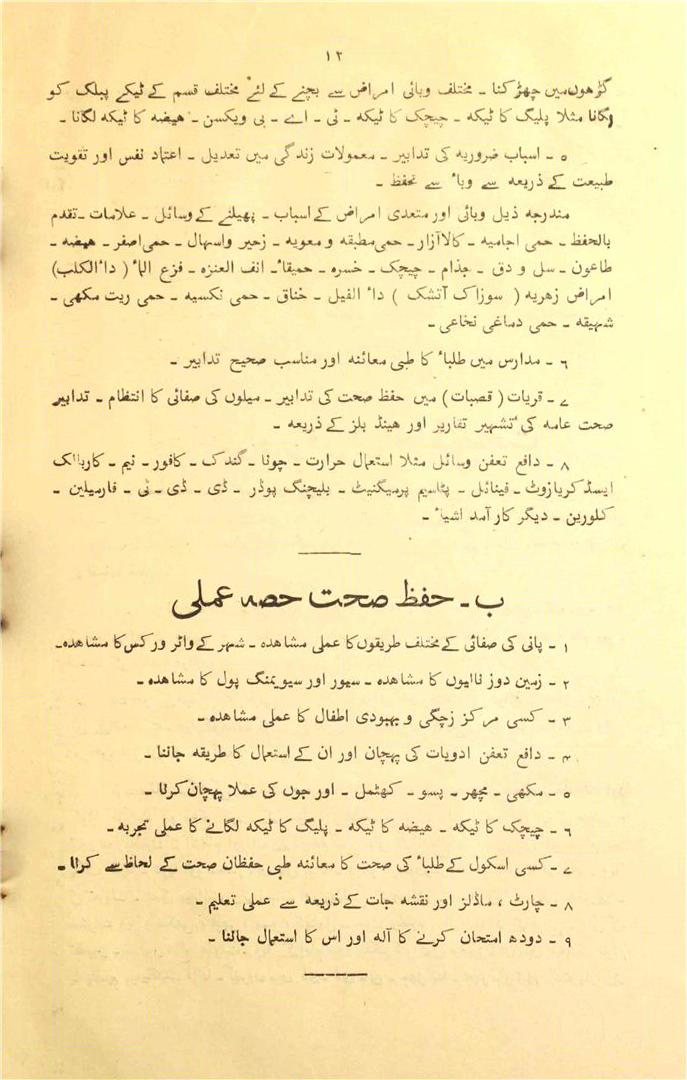 ۱۲
گڑھوں میں چھڑکنا ۔ مختلف وبائی امراض سے بچنے کے لئے مختلف قسم کے ٹیکے پبلک کو
لگانا مثلاً پلیگ کا ٹیکہ ۔ چیچک کا ٹیکہ ۔ ٹی ۔ اے ۔ بی ویکسن ۔ ھیضہ کا ٹیکہ لگانا ۔
۵ ۔ اسباب ضروریہ کی تدابیر ۔ معمولات زندگی میں تعدیل ۔ اعتماد نفس اور تقویت
طبیعت کے ذریعہ سے وباٴ سے تحفظ ۔
مندرجہ ذیل وبائی اور متعدی امراض کے اسباب ۔ پھیلنے کے وسائل ۔ علامات ۔ تقدم
بالحفظ ۔ حمی اجامیہ ۔ کالا آزار ۔ حمی مطبقہ و معویہ ۔ زحیر و اسہال ۔ حمی اصفر ۔ ھیضہ ۔
طاعون ۔ سل و دق ۔ جذام ۔ چیچک ۔ خسرہ ۔ حمیقاٴ ۔ انف العنزہ ۔ فزع الماٴ ( داٴ الکلب )
امراض زھریہ ( سوزاک آتشک ) داٴ الفیل ۔ خناق ۔ حمی نکسیه ۔ حمی ریت مکھی ۔
شہیقہ ۔ حمی دماغی نخاعی ۔
۶ ۔ مدارس میں طلباٴ کا طبی معائنہ اور مناسب صحیح تدابیر ۔
۷ ۔ قریات ( قصبات ) میں حفظ صحت کی تدابیر ۔ میلوں کی صفائی کا انتظام ۔ تدابیر
صحت عامہ کی تشہیر تقاریر اور ھینڈ بلز کے ذریعہ ۔
۸ ۔ دافع تعفن وسائل مثلاً استعمال حرارت ۔ چونا ۔ گندک ۔ کافور ۔ نیم ۔ کاربالک
ایسڈ کریازوٹ ۔ فینائل ۔ پٹاسیم پرمیگنیٹ ۔ بلیچنگ پوڈر ۔ ڈی ۔ ڈی ۔ ٹی ۔ فارمیلین ۔
کلورین ۔ دیگر کارآمد اشیاٴ ۔
ب ۔ حفظ صحت حصہ عملی
۱ ۔ پانی کی صفائی کے مختلف طریقوں کا عملی مشاھدہ ۔ شہر کے واٹر ورکس کا مشاھدہ ۔
۲ ۔ زمین دوز نالیوں کا مشاھدہ ۔ سیور اور سیویمنگ پول کا مشاھدہ ۔
۳ ۔ کسی مرکز زچگی و بہبودی اطفال کا عملی مشاھدہ ۔
۴ ۔ دافع تعفن ادویات کی پہچان اور ان کے استعمال کا طریقہ جاننا ۔
۵ ۔ مکھی ۔ مچھر ۔ پسو ۔ کھٹمل ۔ اور جوں کی عملاً پہچان کرنا ۔
۶ ۔ چیچک کا ٹیکہ ۔ ھیضہ کا ٹیکہ ۔ پلیگ کا ٹیکہ لگانے کا عملی تجربہ ۔
۷ ۔ کسی اسکول کے طلباٴ کی صحت کا معائنہ طبی حفظان صحت کے لحاظ سے کرنا ۔
۸ ۔ چارٹ ، ماڈلز اور نقشہ جات کے ذریعہ سے عملی تعلیم ۔
۹ ۔ دودھ امتحان کرنے کا آلہ اور اس کا استعمال جاننا ۔